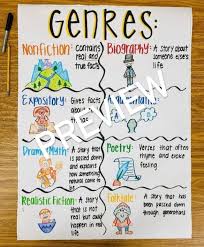 GENRES:
Nonfiction: Contains
real and
true facts
Biography: A story about
someone else's
life
Expository: Gives facts
about
Drama/Myth: A story that
is passed down
and explains
how something
natural came to
be
Poetry: Verses that often
rhyme and evoke
feeling
Realistic Fiction: A story
that is not
real but could
happen in real
life
Folktale: A story that has
been passed down
through generations
PREVIEW